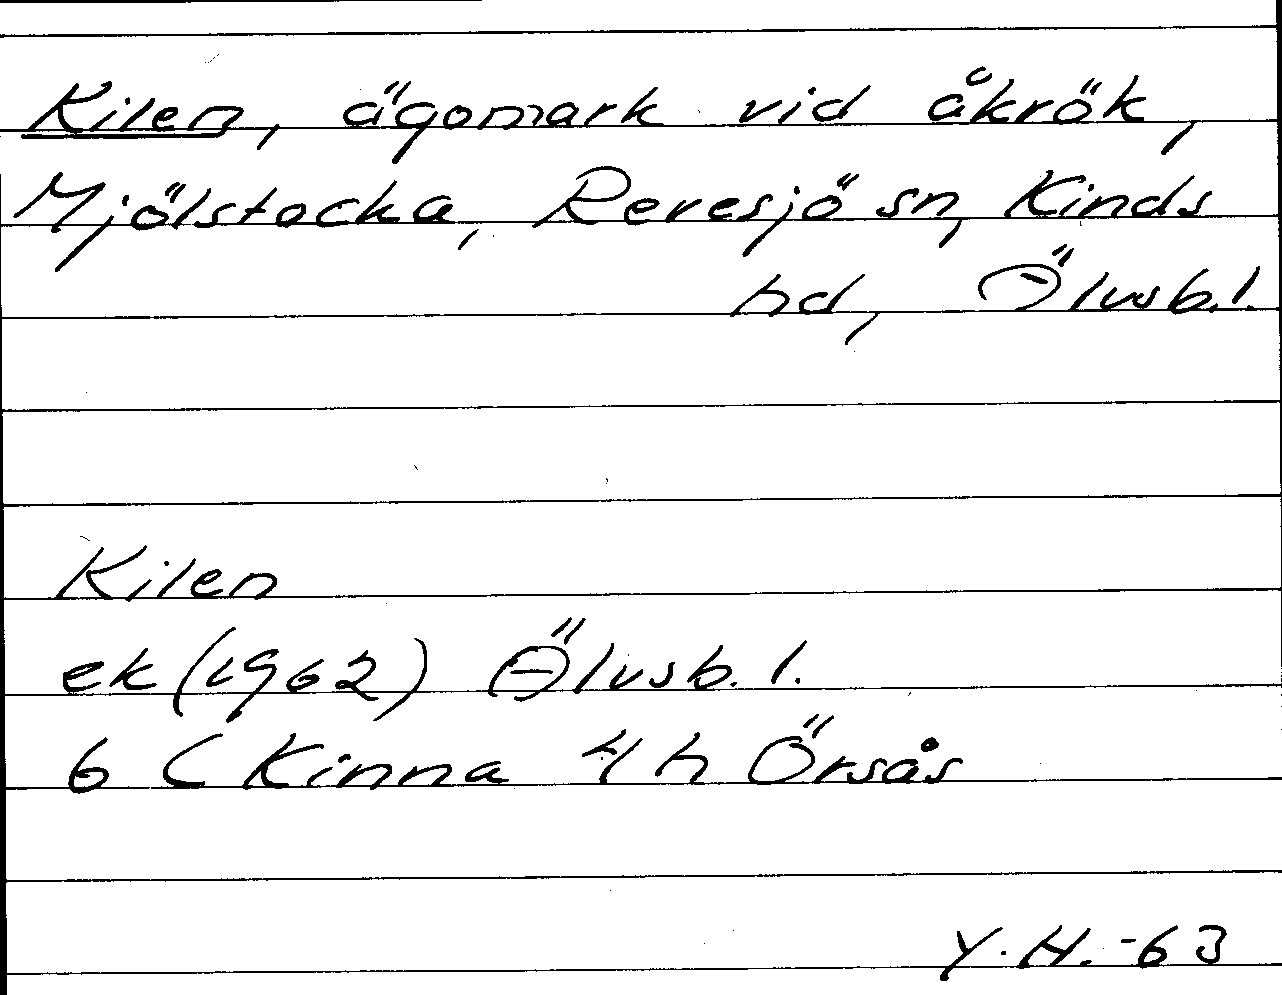 Kilen, ägomark vid åkrök,
Mjölstocka, Revesjö sn, Kinds
hd, Älvsb.l.
Kilen
ek (1962) Älvsb. l.
6 C Kinna 4 h Örsås
Y. H. -63